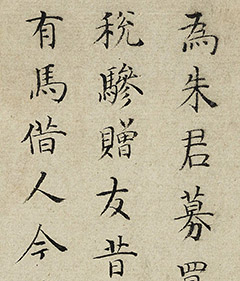 為朱君募
稅驂贈友昔
有馬借人今